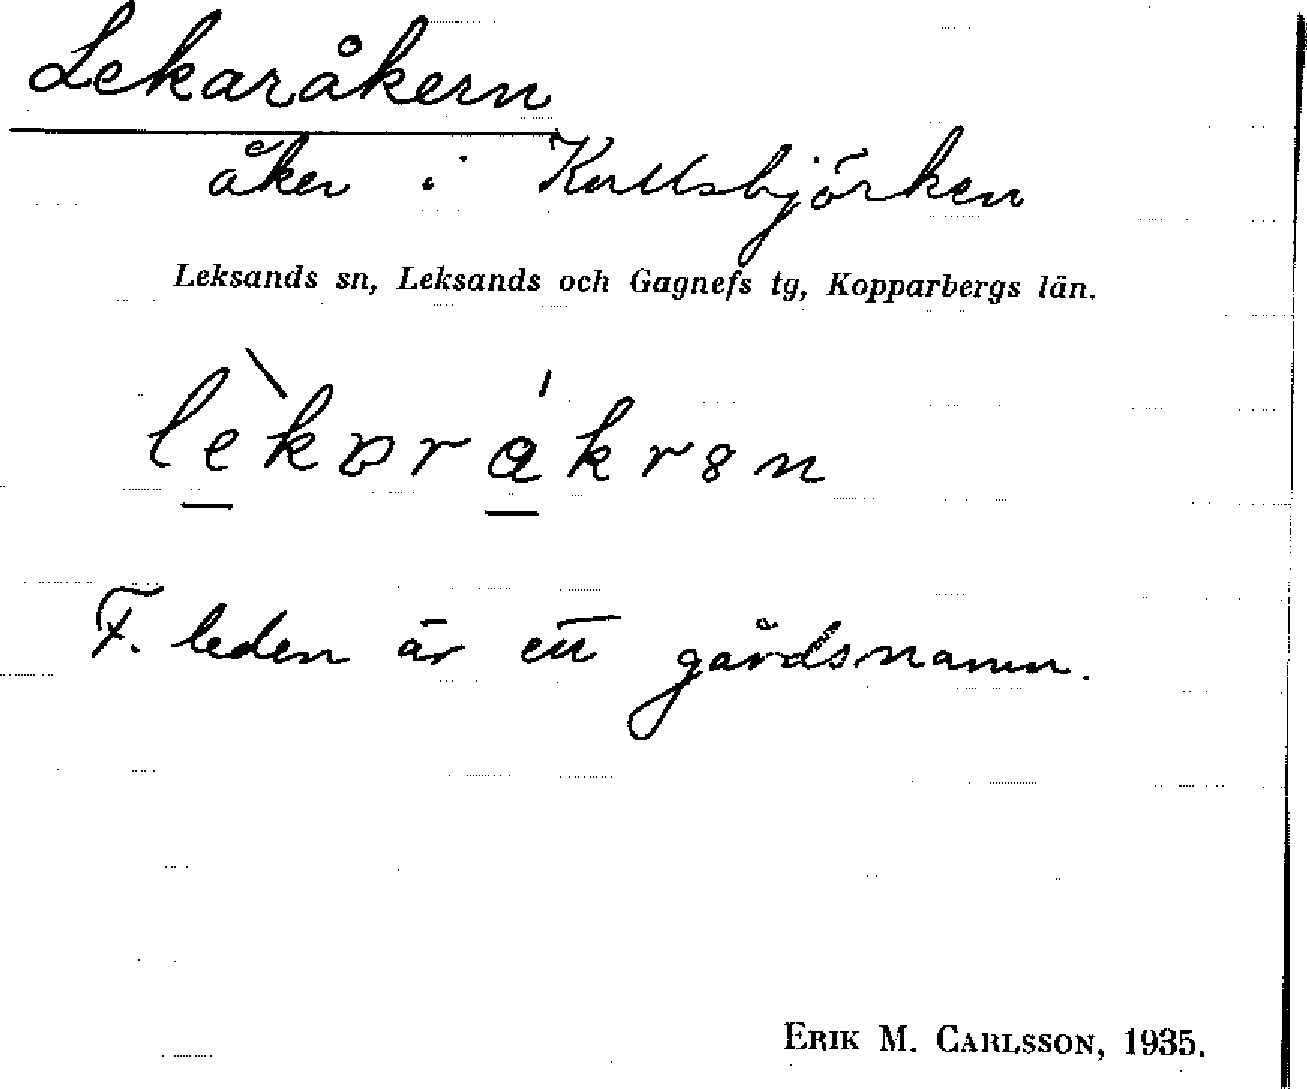 Lekaråkern
åker i Kullsbjörken
Leksands sn, Leksands och Gagnefs tg, Kopparbergs län.
F. leden är ett gårdsnamn.
ERIK M. CARLSSON, 1935.